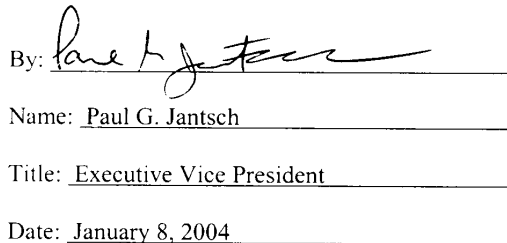 By:
Name: Paul G. Jantsch
Title: Executive Vice President
Date: January 8, 2004